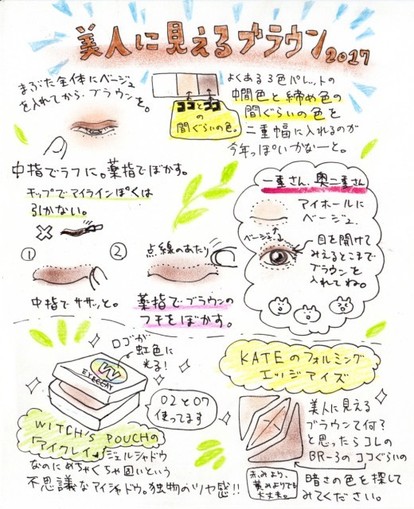 美人に見えるブラウン2017
まぶた全体にベージュ
を入れてから、ブラウンを。
よくある3色パレットの
中間色と締め色の
間ぐらいの色を
二重幅に入れるのが
今年っぽいかなーと。
ココとココ
の間ぐらいの色。
中指でラフに。薬指でぼかす。
チップでアイラインぽくは
引かない。
①
中指でササッと。
②
点線のあたり
薬指でブラウンの
フチをぼかす。
一重さん、奥二重さん
アイホールに
ベージュ
ベージュ
目を開けて
みえるとこまで
ブラウンを
入れてね。
ロゴが
虹色に
光る!
EXCECAY
02と07
使ってます
WITCH'S POUCHの
「アイクレイ」ジェルシャドウ
なのにめちゃくちゃ固いという
不思議なアイシャドウ。独特のツヤ感!!
KATEのフォルミング
エッジアイズ
美人に見える
ブラウンて何?
と思ったらコレの
BR-3のココぐらいの
暗さの色を探して
みてください。
赤みより、
黄みよりでも
大丈夫。